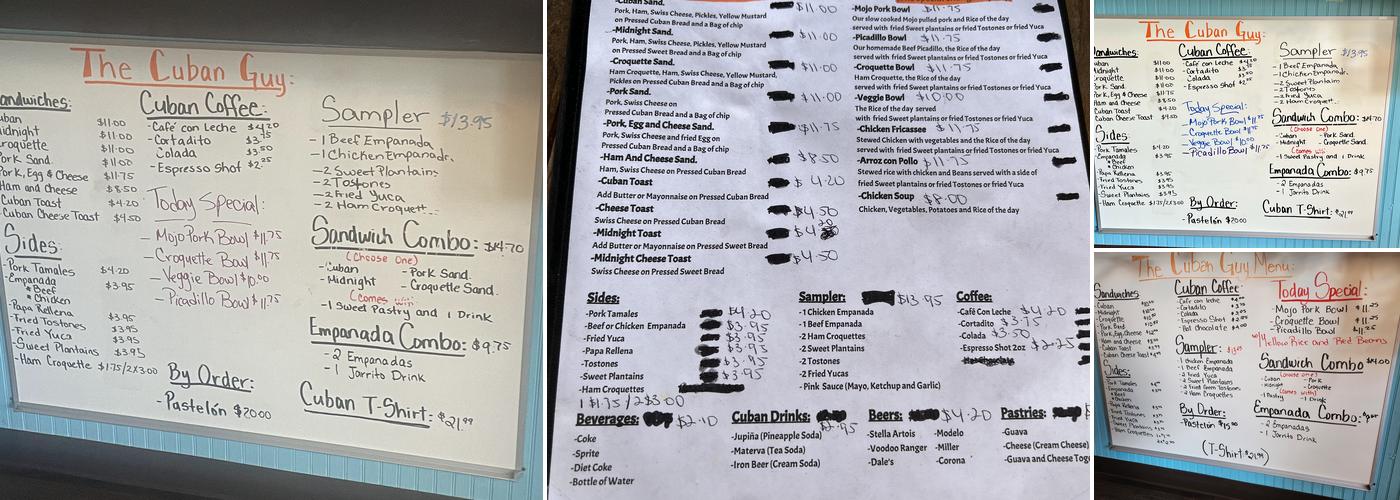 The Cuban Guy:
andwiches:
uban $11.00
idnight $11.00
roquette $11.00
Pork Sand. $11.00
Pork, Egg & Cheese $11.75
Ham and cheese $8.50
Cuban Toast $4.20
Cuban Cheese Toast $4.50
Sides:
-Pork Tamales $4.20
-Empanada $3.95
• Beef
• Chicken
-Papa Rellena $3.95
-Fried Tostones $3.95
-Fried Yuca $3.95
-Sweet Plantains $3.95
-Ham Croquette $1.75/2x3.00
Cuban Coffee:
-Café con Leche $4.20
-Cortadito $3.75
Colada $3.50
-Espresso Shot $2.25
Today Special:
- Mojo Pork Bowl $11.75
- Croquette Bowl $11.75
- Veggie Bowl $10.00
- Picadillo Bowl $11.75
By Order:
-Pastelón $20.00
Sampler $13.95
- 1 Beef Empanada
- 1 Chicken Empanada.
- 2 Sweet Plantains
- 2 Tostones
- 2 Fried Yuca
- 2 Ham Croquett..
Sandwich Combo: $14.70
(Choose One)
-Cuban - Pork Sand.
-Midnight - Croquette Sand.
(Comes
-1 Sweet Pastry and 1 Drink
Empanada Combo: $9.75
- 2 Empanadas
- 1 Jarrito Drink
Cuban T-Shirt: $21.99
-Cuban Sand. $11.00
Pork, Ham, Swiss Cheese, Pickles, Yellow Mustard
on Pressed Cuban Bread and a Bag of chip
-Midnight Sand. $11.00
Pork, Ham, Swiss Cheese, Pickles, Yellow Mustard
on Pressed Sweet Bread and a Bag of chip
-Croquette Sand. $11.00
Ham Croquette, Ham, Swiss Cheese, Yellow Mustard,
Pickles on Pressed Cuban Bread and a Bag of chip
-Pork Sand. $11.00
Pork, Swiss Cheese on
Pressed Cuban Bread and a Bag of chip
-Pork, Egg and Cheese Sand. $11.75
Pork, Swiss Cheese and fried Egg on
Pressed Cuban Bread and a Bag of chip
-Ham And Cheese Sand. $8.50
Ham, Swiss Cheese on Pressed Cuban Bread
-Cuban Toast $4.20
Add Butter or Mayonnaise on Pressed Cuban Bread
-Cheese Toast $4.50
Swiss Cheese on Pressed Cuban Bread
-Midnight Toast $4.20
Add Butter or Mayonnaise on Pressed Sweet Bread
-Midnight Cheese Toast $4.50
Swiss Cheese on Pressed Sweet Bread
-Mojo Pork Bowl $11.75
Our slow cooked Mojo pulled pork and Rice of the day
served with fried Sweet plantains or fried Tostones or fried Yuca
-Picadillo Bowl $11.75
Our homemade Beef Picadillo, the Rice of the day
served with fried Sweet plantains or fried Tostones or fried Yuca
-Croquette Bowl $11.75
Ham Croquette, the Rice of the day
served with fried Sweet plantains or fried Tostones or fried Yuca
-Veggie Bowl $10.00
The Rice of the day served
with fried Sweet plantains or fried Tostones or fried Yuca
-Chicken Fricassee $11.75
Stewed Chicken with vegetables and the Rice of the day
served with fried Sweet plantains or fried Tostones or fried Yuca
-Arroz con Pollo $11.75
Stewed rice with chicken and Beans served with a side of
fried Sweet plantains or fried Tostones or fried Yuca
-Chicken Soup $8.00
Chicken, Vegetables, Potatoes and Rice of the day
Sides:
-Pork Tamales $4.20
-Beef or Chicken Empanada $3.95
-Fried Yuca $3.95
-Papa Rellena $3.95
-Tostones $3.95
-Sweet Plantains $3.95
-Ham Croquettes
1 $1.75/2 $3.00
Sampler: $13.95
-1 Chicken Empanada
-1 Beef Empanada
-2 Ham Croquettes
-2 Sweet Plantains
-2 Tostones
-2 Fried Yucas
- Pink Sauce (Mayo, Ketchup and Garlic)
Coffee:
-Café Con Leche $4.20
-Cortadito $3.75
-Colada $3.50
-Espresso Shot 2oz $2.25
Beverages: $2.10
-Coke
-Sprite
-Diet Coke
-Bottle of Water
Cuban Drinks: $2.95
-Jupiña (Pineapple Soda)
-Materva (Tea Soda)
-Iron Beer (Cream Soda)
Beers: $4.20
-Stella Artois -Modelo
-Voodoo Ranger -Miller
-Dale's -Corona
Pastries:
-Guava
-Cheese (Cream Cheese)
-Guava and Cheese Tog
The Cuban Guy:
andwiches:
uban $11.00
idnight $11.00
roquette $11.00
Pork Sand. $11.00
Pork, Egg & Cheese $11.75
Ham and Cheese $8.50
Cuban Toast $4.20
Cuban Cheese Toast $4.50
Sides:
-Pork Tamales $4.20
-Empanada $3.95
• Beef
• Chicken
-Papa Rellena $3.95
-Fried Tostones $3.95
-Fried Yuca $3.95
-Sweet Plantains $3.95
-Ham Croquette $1.75/2x3.00
Cuban Coffee:
-Café con Leche $4.20
-Cortadito $3.75
Colada $3.50
-Espresso Shot $2.25
Today Special:
-Mojo Pork Bowl $11.75
-Croquette Bowl $11.75
-Veggie Bowl $10.00
-Picadillo Bowl $11.75
By Order:
-Pastelón $20.00
Sampler $13.95
- 1 Beef Empanada
- 1 Chicken Empanada.
- 2 Sweet Plantain
- 2 Tostones
- 2 Fried Yuca
- 2 Ham Croquet..
Sandwich Combo: $14.70
(Choose One)
-Cuban - Pork Sand.
-Midnight - Croquette Sand.
(Comes
-1 Sweet Pastry and 1 Drink
Empanada Combo: $9.75
- 2 Empanadas
- 1 Jarrito Drink
Cuban T-Shirt: $21.99
The Cuban Guy Menu:
Sandwiches
-Cuban
-Midnight
-Croquette
-Pork Sand
-Pork, Egg, Cheese
-Ham and Cheese
-Cuban Toast
-Cuban Cheese Toast
Sides:
-Pork Tamales
-Empanada
• Beef
• Chicken
Cuban Coffee:
-Café con Leche
-Cortadito
-Colada
-Espresso Shot
-Hot chocolate
Sampler:
-1 Chicken Empanada
-1 Beef Empanada
-2 Fried Yuca
-2 Sweet Plantains
-2 Fried Green Tostones
-2 Ham Croquettes
By Order:
-Pastelón $15.00
(T-Shirt $21.99)
Today Special:
-Mojo Pork Bowl $11.25
-Croquette Bowl $11.25
-Picadillo Bowl $11.25
w/Yellow Rice and Red Beans
Sandwich Combo $14.00
(Choose One)
-Cuban -Pork
-Midnight -Croquette
(Comes with)
-1 Pastry -1 Drink
Empanada Combo:
-2 Empanadas
-1 Jarrito Drink